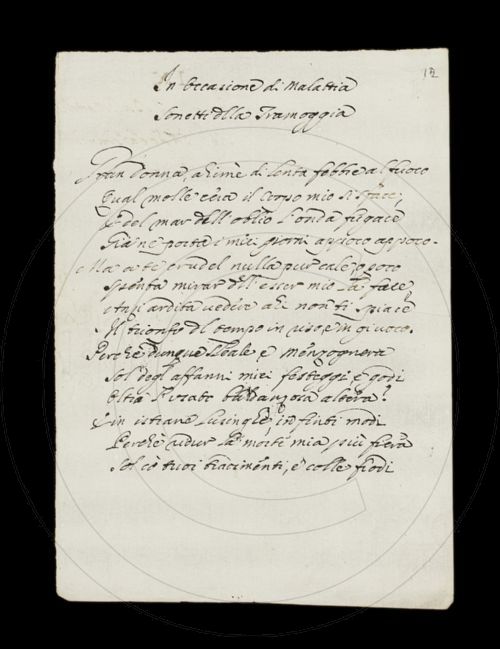 12
In occasione di Malattia
Sonetto della Tramoggia
Gran donna, ahimè di lenta febbre al fuoco
Qual molle cera il Corpo mio si sface;
E del mar dell'oblio l'onda fugace
Già ne porta i miei giorni a poco a poco.
Ma a te crudel nulla pur cale, o poco
mirar dell' esser mio la face,
Anzi ardita vedere a noi non ti spiace
Il trionfo di tempo in viso, e in giuoco.
Perchè dunque sleale, e menzognera
Sol degl' affanni miei festeggi, e godi
Oltre l'usato baldanzosa altera?
E in istrane lusinghe, in finti modi
Perchè ridur la morte mia più fiera
Sol co' tuoi tradimenti, e colle frodi